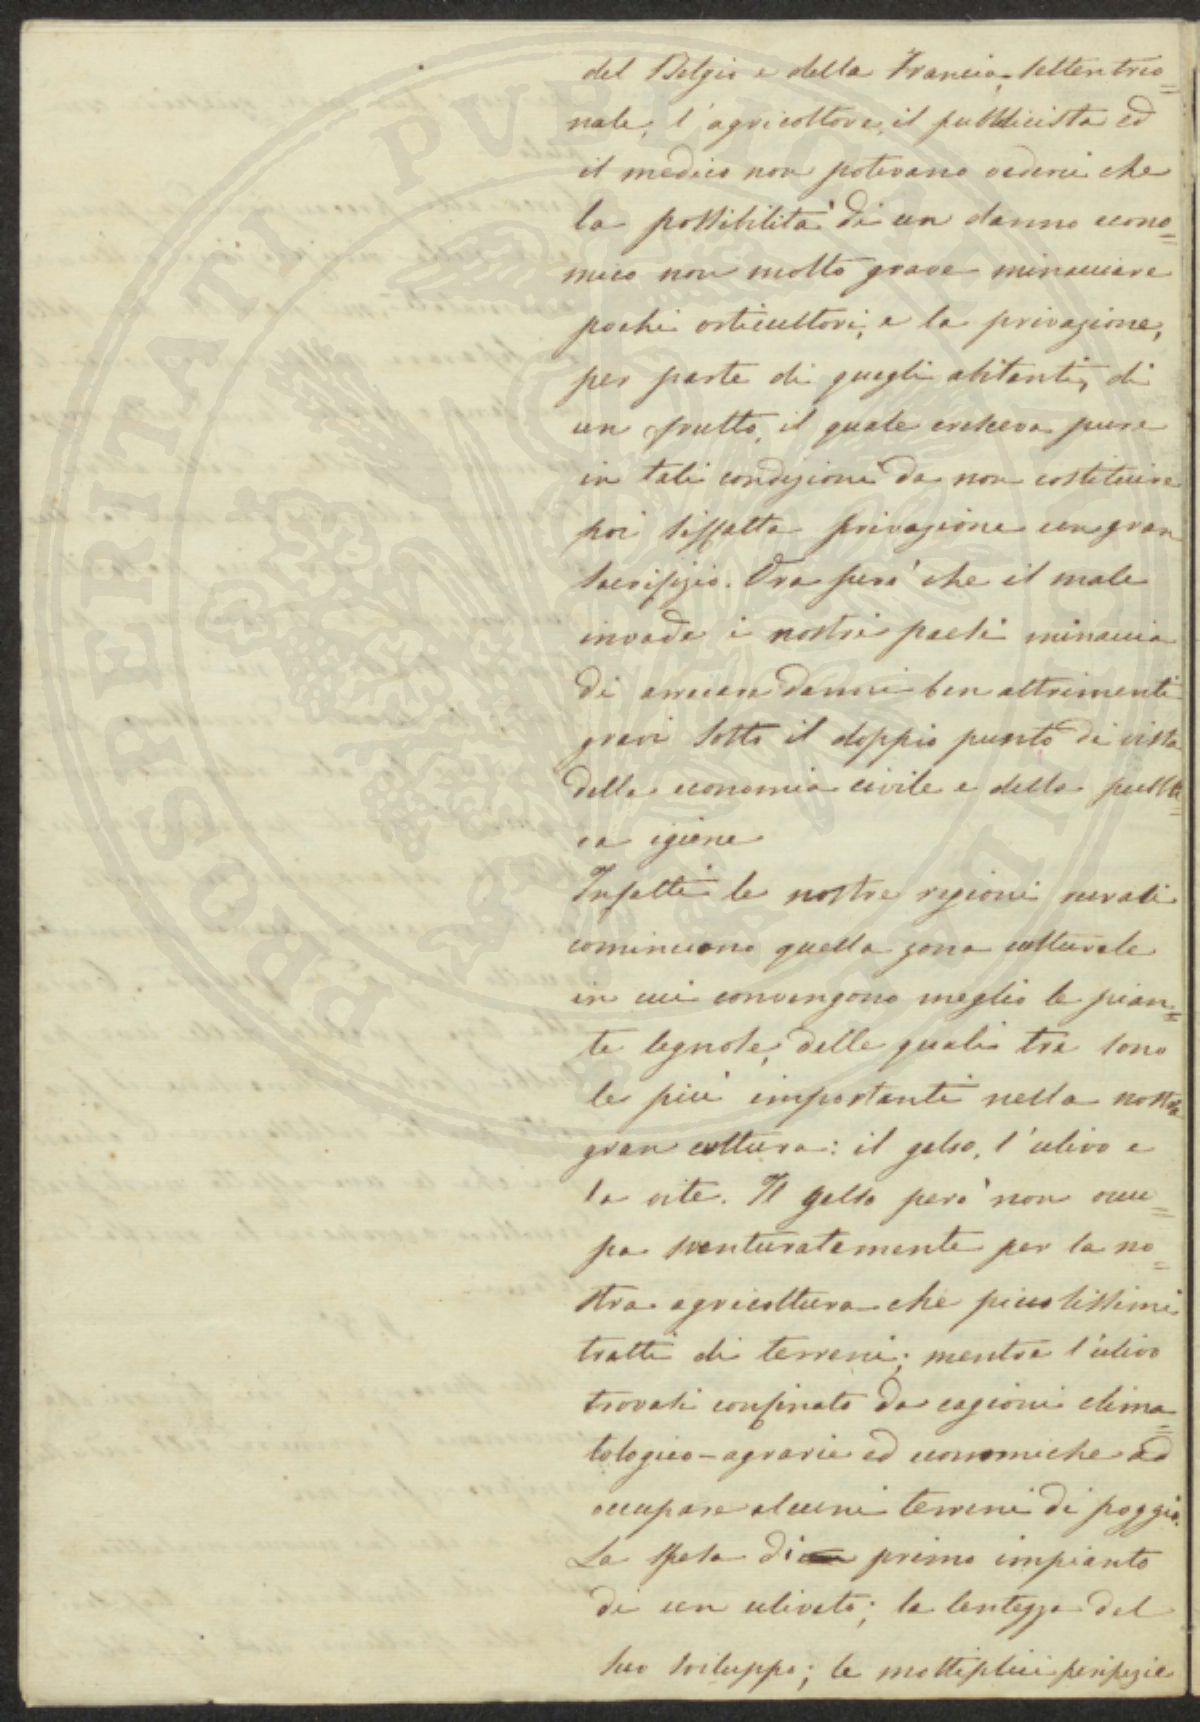 del Belgio e della Francia settentrio=
nale, l'agricoltore, il pubblicista ed
il medico non potevano vedervi che
la possibilità di un danno econo=
mico non molto grave minacciare
pochi orticultori, e la privazione,
per parte di quegli abitanti, di
un frutto, il quale cresceva pure
in tali condizioni da non costituire
poi siffatta privazione un gran
sacrifizio. Ora però che il male
invade i nostri paesi minaccia
di arrecare danni ben altrimenti
gravi sotto il doppio punto di vista
della economia civile e della pubbli=
ca igiene
Infatti le nostre regioni rurali
cominciano quella zona culturale
in cui convengono meglio le pian=
te legnose, delle quali tre sono
le più importanti nella nostra
gran cultura: il gelso, l'ulivo e
la vite. Il gelso però non occu=
pa sventuratamente per la no=
stra agricoltura che piccolissimi
tratti di terreni; mentre l'ulivo
trovasi confinato da cagioni clima=
tologico-agrarie ed economiche ad
occupare alcuni terreni di poggio.
La spesa di primo impianto
di un uliveto; la lentezza del
suo sviluppo; le molteplici peripezie
PROSPERITATI PUBLICAE